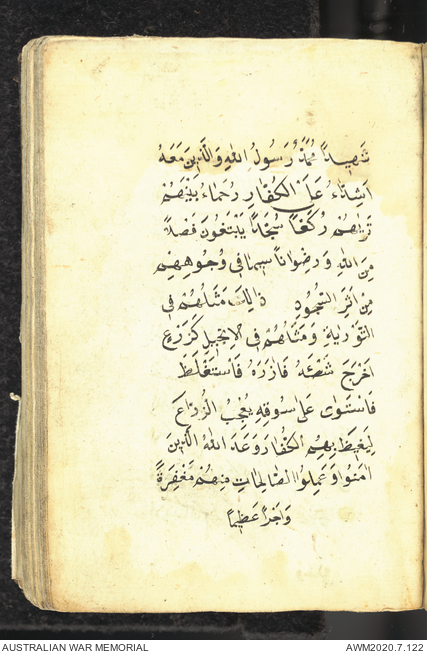 شَهِيداً مُحَمَّدٌ رَسُولُ اللهِ وَالَّذِينَ مَعَهُ
اَشِدَّاءُ عَلَى الكُفَّارِ رُحَمَاءُ بَيْنَهُمْ
تَرٰيهُمْ رُكَّعاً سُجَّداً يَبْتَغُونَ فَضْلاً
مِنَ اللهِ وَرِضْوَاناً سِيمَا فِي وُجُوهِهِمْ
مِنْ اَثَرِ السُّجُودِ ذَالِكَ مَثَلُهُمْ فِي
التَّوْرٰيةِ وَمَثَلُهُمْ فِي الاِنْجِيلِ كَزَرْعٍ
اَخْرَجَ شَطْئَهُ فَاٰزَرَهُ فَاسْتَغْلَظَ
فَاسْتَوٰى عَلٰى سُوقِهِ يُعْجِبُ الزُّرَّاعَ
لِيَغِيظَ بِهِمُ الكُفَّارَ وَعَدَ اللهُ الَّذِينَ
اٰمَنُوا وَعَمِلُوا الصَّالِحَاتِ مِنْهُمْ مَغْفِرَةً
وَاَجْراً عَظِيماً
AUSTRALIAN WAR MEMORIAL AWM2020.7.122